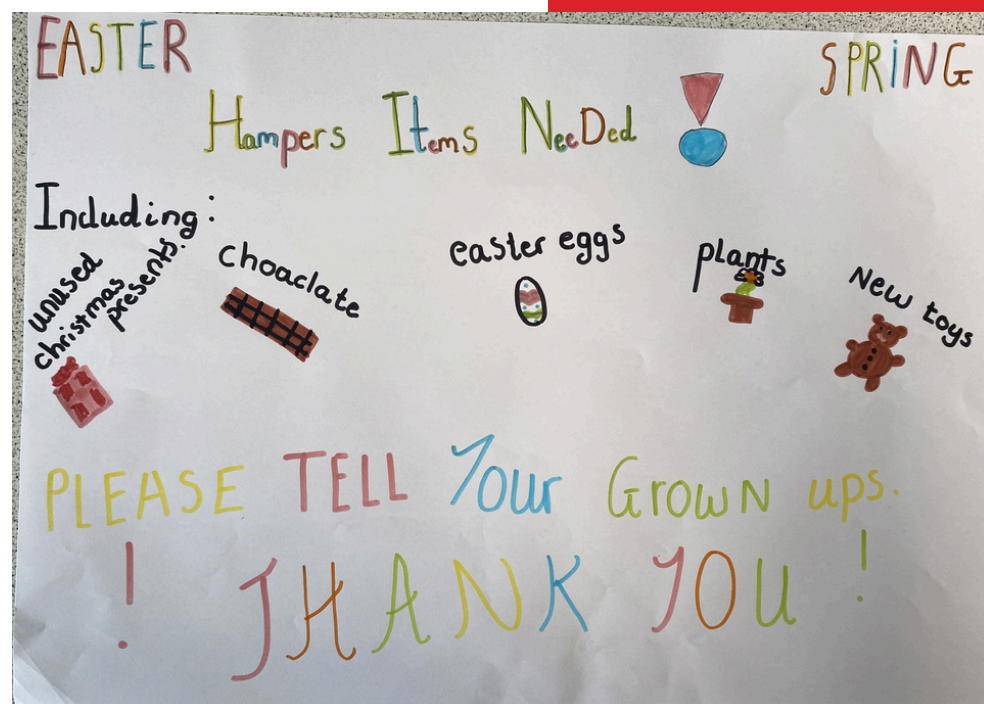 EASTER SPRiNG
Hampers Items NeeDed !
Including:
unused christmas presents.
choaclate
easter eggs
plants
New toys
PLEASE TELL Your GrowN ups.
! THANK YOU !